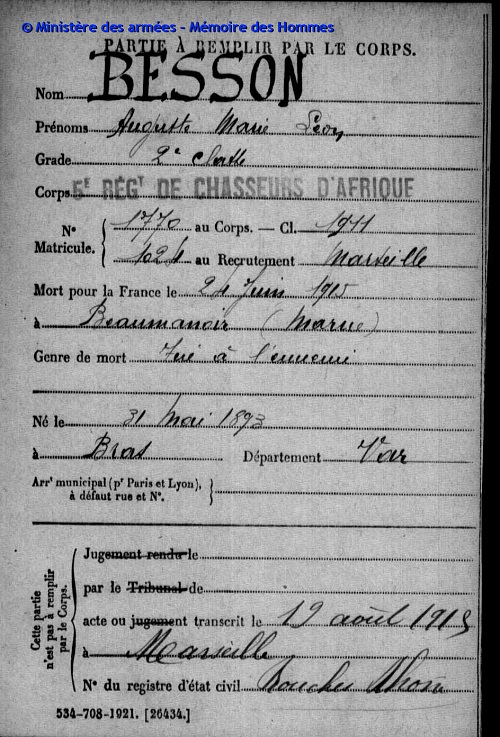 © Ministère des armées - Mémoire des Hommes
PARTIE À REMPLIR PAR LE CORPS.
Nom BESSON
Prénoms Auguste Marie Léon
Grade 2e classe
Corps 5E RÉGT DE CHASSEURS D'AFRIQUE
No Matricule. { 1770 au Corps. — Cl. 1911
1024 au Recrutement Marseille
Mort pour la France le 24 Juin 1915
à Beaumanoir (Marne)
Genre de mort Tué à l'ennemi
Né le 31 Mai 1893
à Bras Département Var
Arrt municipal (pr Paris et Lyon), à défaut rue et No. }
Cette partie n'est pas à remplir par le Corps.
Jugement rendu le
par le Tribunal de
acte ou jugement transcrit le 19 août 1915
à Marseille
No du registre d'état civil Bouches Rhône
534-708-1921. [26434.]